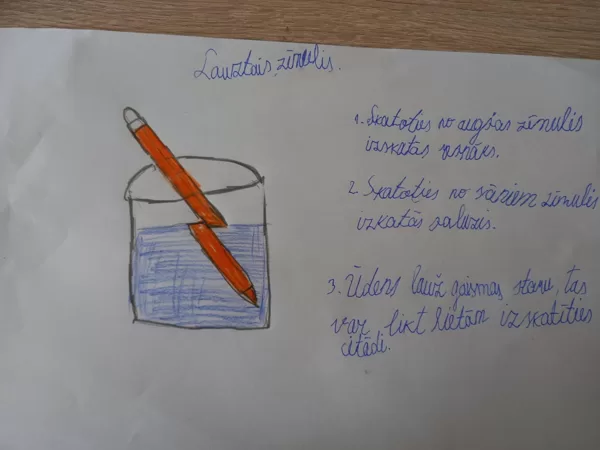 Lauztais zīmulis.
1. Skatoties no augšas zīmulis
izskatās resnāks.
2. Skatoties no sāniem zīmulis
izkatās salūzis.
3. Ūdens lauž gaismas staru, tas
var likt lietām izskatīties
citādi.